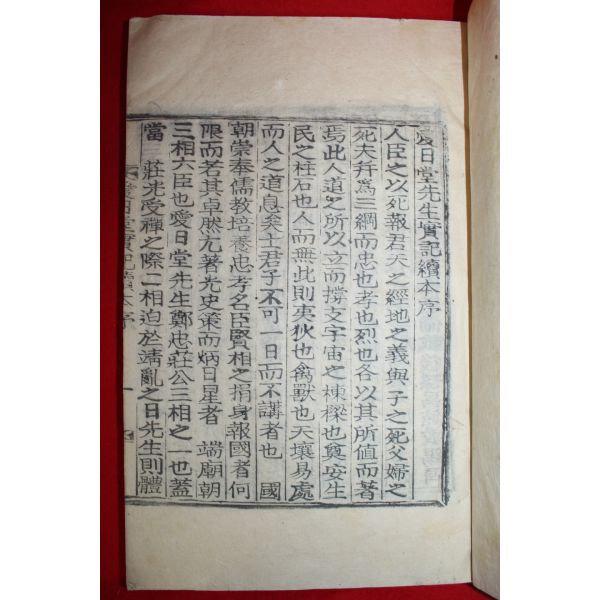 愛日堂先生實記續本序
人臣之以死報君天之經地之義與子之死父婦之
死夫幷爲三綱而忠也孝也烈也各以其所値而著
焉此人道之所以立而撐支宇宙之棟樑也奠安生
民之柱石也人而無此則夷狄也禽獸也天壤易處
而人之道息矣士君子不可一日而不講者也 國
朝崇奉儒敎培養忠孝名臣賢相之捐身報國者何
限而若其卓然尤著光史策而炳日星者 端廟朝
三相六臣也愛日堂先生鄭忠莊公三相之一也蓋
當 莊光受禪之際二相迫於靖亂之日先生則體
愛日堂實記續本序 一